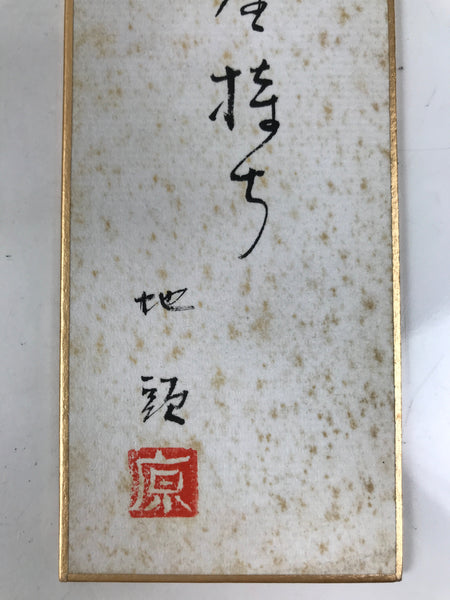 持ち
地頭
原